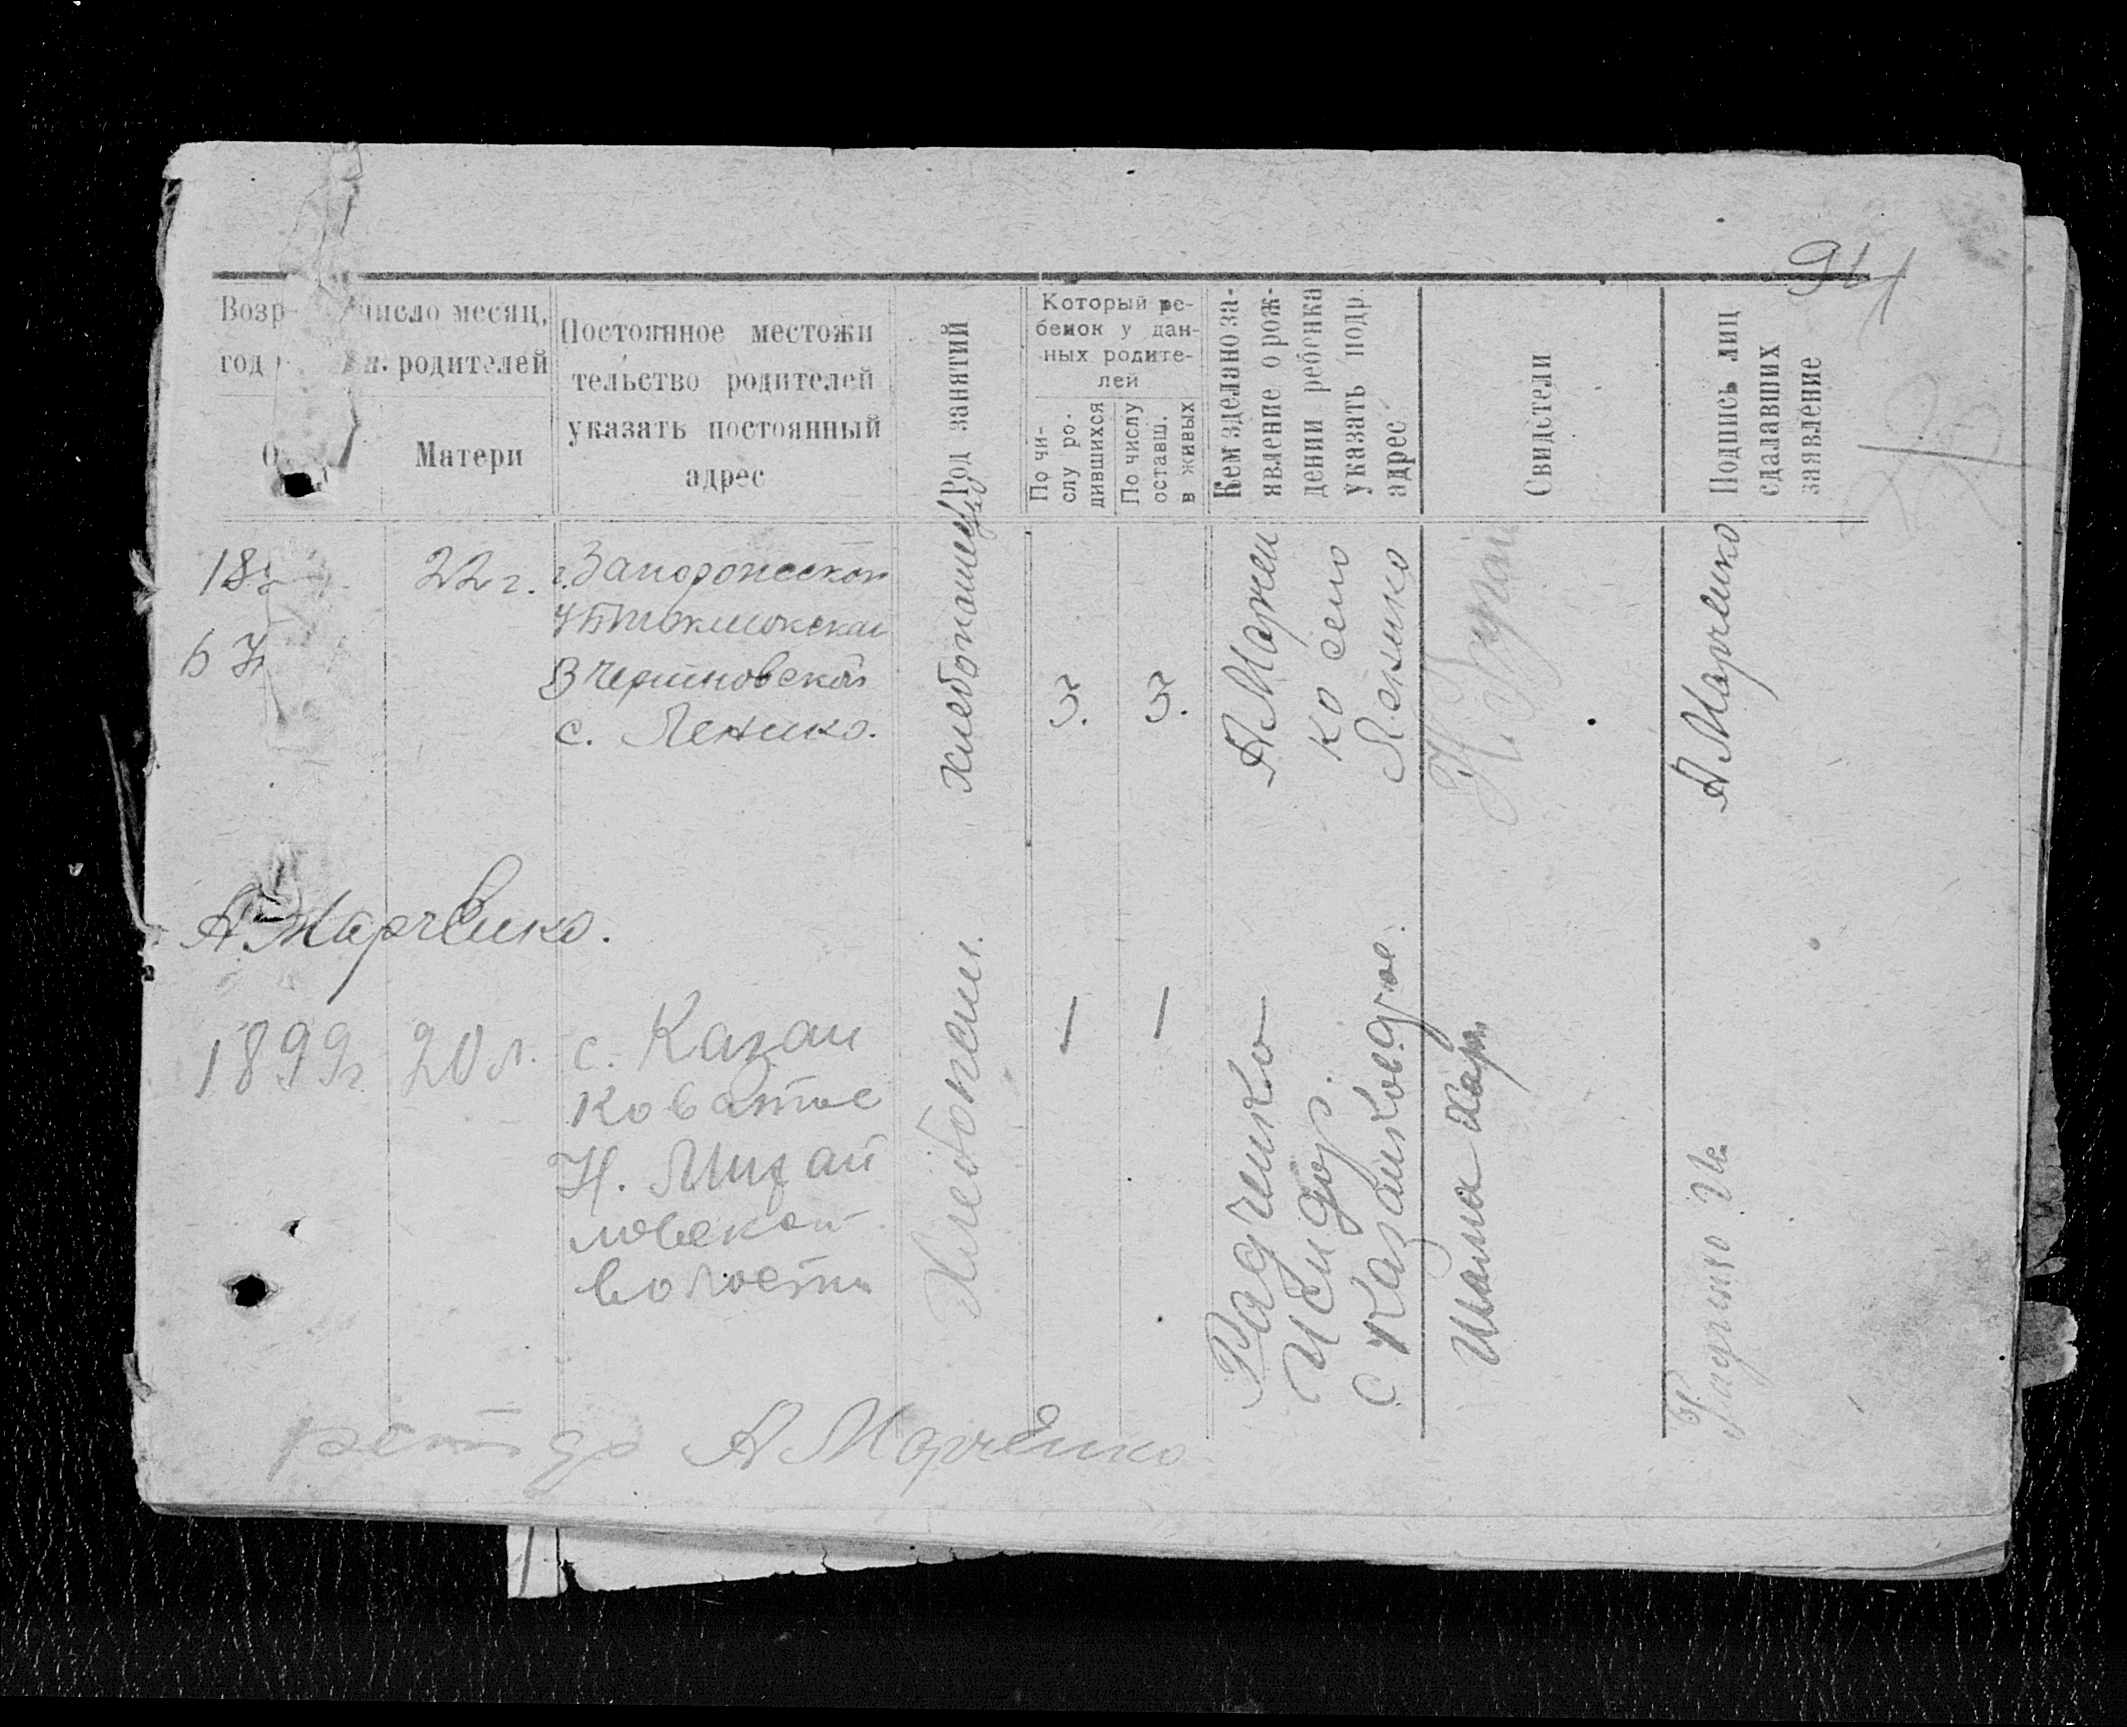 94
Возр- число месяц,
год н. родителей
Матери
Постоянное местожи
тельство родителей
указать постоянный
адрес
Род занятий
Который ре-
бенок у дан-
ных родите-
лей
По чи-
слу ро-
дившихся
По числу
оставш.
в живых
Кем зделано за-
явление о рож-
дении ребенка
указать подр.
адрес
Свидетели
Подпись лиц
сдалавших
заявление
22 г.
г. Запорожской
с. Ленико.
Хлебопашец
3.
3.
А Марчен
ко село
Ленико
А Марченко
А Марченко.
1899 г.
20 л.
с. Казан
коватое
Н. Михай
ловской
волости
Хлебопаш.
—
—
Радченко
Исидор.
с Казанковатое.
Радченко И.
А Марченко